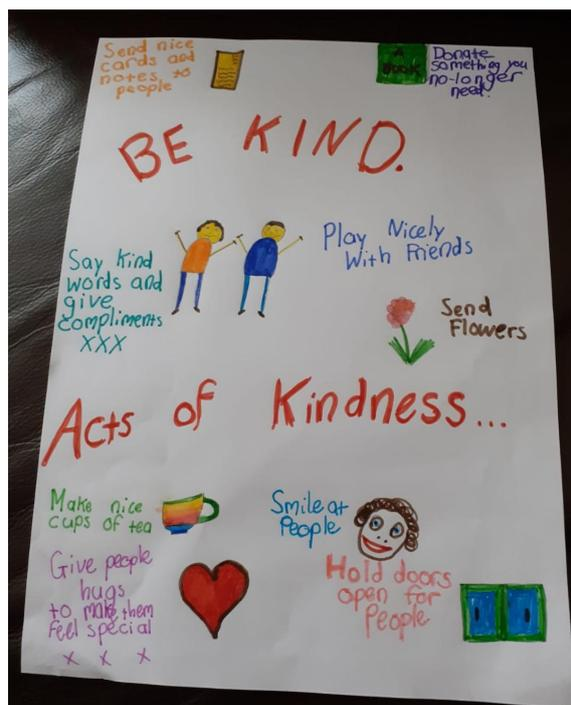 Send nice
cards and
notes to
people
A
Book
Donate
something you
no-longer
need!
BE KIND.
Say Kind
words and
give
compliments
xxx
Play Nicely
With Friends
Send
Flowers
Acts of Kindness...
Make nice
cups of tea
Smile at
People
Give people
hugs
to make them
feel special
x x x
Hold doors
open for
People